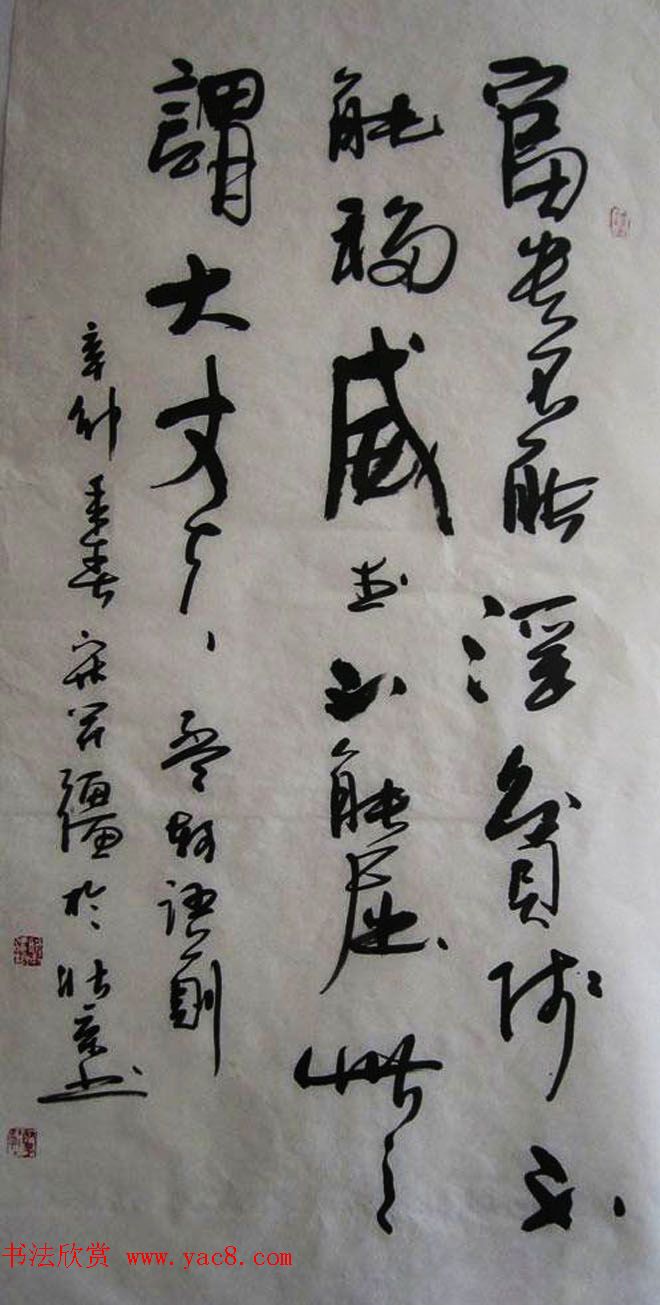 富貴不能淫貧賤不
能移威武不能屈此之
謂大丈夫孟軻語一則
辛卯春於北京書
书法欣赏 www.yac8.com